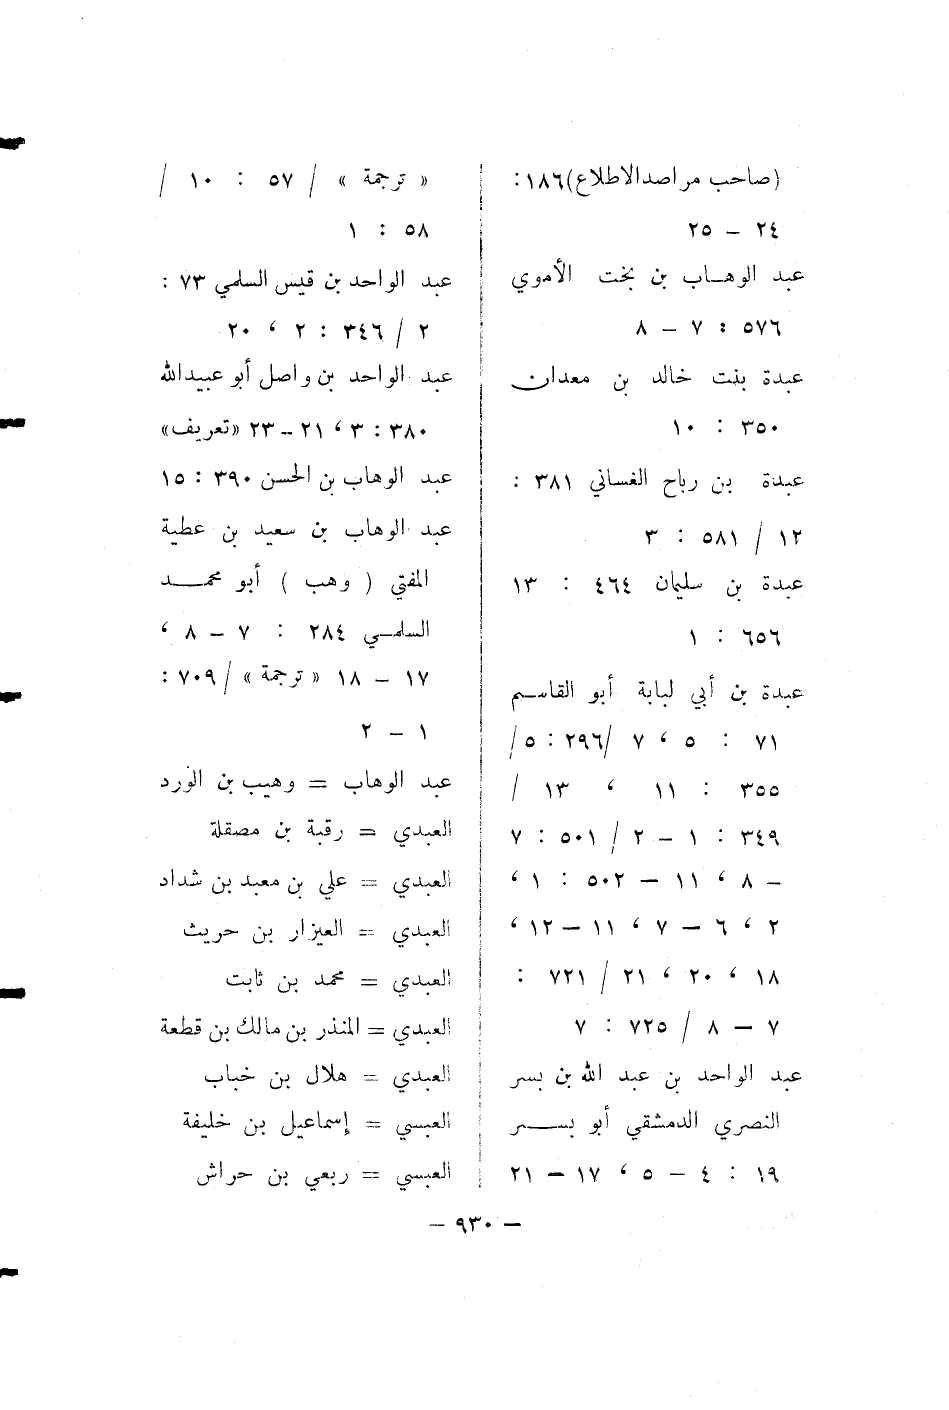 (صاحب مراصد الاطلاع) ١٨٦ :
٢٤ – ٢٥
عبد الوهاب بن بخت الأموي
٥٧٦ : ٧ – ٨
عبدة بنت خالد بن معدان
٣٥٠ : ١٠
عبدة بن رباح الغساني ٣٨١ :
١٢ / ٥٨١ : ٣
عبدة بن سليمان ٤٦٤ : ١٣
٦٥٦ : ١
عبدة بن أبي لبابة أبو القاسم
٧١ : ٥ ، ٧ /٢٩٦ : ٥/
٣٥٥ : ١١ ، ١٣ /
٣٤٩ : ١ – ٢ / ٥٠١ : ٧
– ٨ ، ١١ – ٥٠٢ : ١ ،
٢ ، ٦ – ٧ ، ١١ – ١٢ ،
١٨ ، ٢٠ ، ٢١ / ٧٢١ :
٧ – ٨ / ٧٢٥ : ٧
عبد الواحد بن عبد الله بن بسر
النصري الدمشقي أبو بسر
١٩ : ٤ – ٥ ، ١٧ – ٢١
« ترجمة » / ٥٧ : ١٠ /
٥٨ : ١
عبد الواحد بن قيس السلمي ٧٣ :
٢ / ٣٤٦ : ٢ ، ٢٠
عبد الواحد بن واصل أبو عبيدالله
٣٨٠ : ٣ ، ٢١ – ٢٣ «تعريف»
عبد الوهاب بن الحسن ٣٩٠ : ١٥
عبد الوهاب بن سعيد بن عطية
المفتي ( وهب ) أبو محمد
السلمي ٢٨٤ : ٧ – ٨ ،
١٧ – ١٨ « ترجمة » / ٧٠٩ :
١ – ٢
عبد الوهاب = وهيب بن الورد
العبدي = رقبة بن مصقلة
العبدي = علي بن معبد بن شداد
العبدي = العيزار بن حريث
العبدي = محمد بن ثابت
العبدي = المنذر بن مالك بن قطعة
العبدي = هلال بن خباب
العبسي = إسماعيل بن خليفة
العبسي = ربعي بن حراش
– ٩٣٠ –